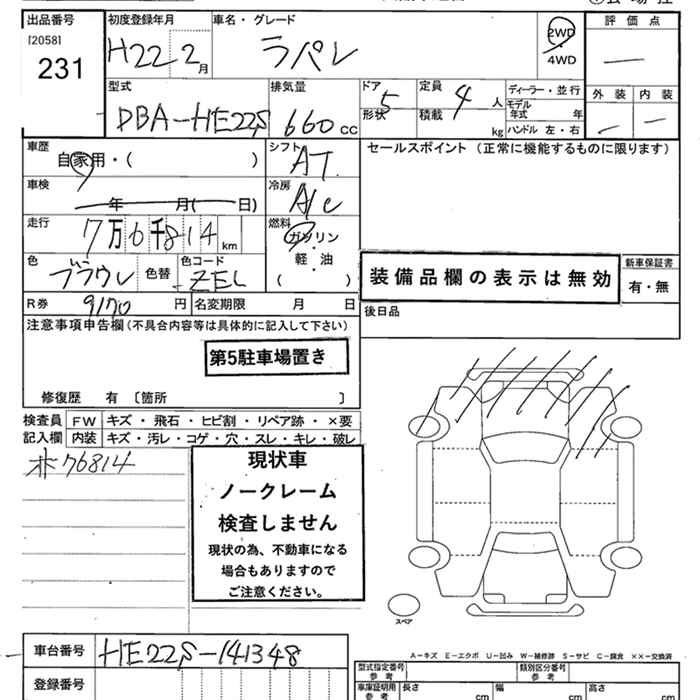 出品番号 初度登録年月 車名・グレード 評価点
[2058] 231 H22 2月 ラパン 2WD ・ 4WD —
外装 内装
— —
型式 排気量 ドア 定員 ディーラー・並行
DBA-HE22S 660 cc 5 4人 モデル年式 年
形状 積載 kg ハンドル 左・右
車歴 シフト セールスポイント (正常に機能するものに限ります)
自家用・( ) AT
車検 冷房
年 月( 日) A/C
走行 燃料
7万6千814 km ガソリン・軽・油・( )
色 色替 色コード
ブラウン ZEL
装備品欄の表示は無効
新車保証書
有・無
R券 9170円 名変期限 月 日
後日品
注意事項申告欄(不具合内容等は具体的に記入して下さい)
第5駐車場置き
修復歴 有 〔箇所 〕
検査員 FW キズ・飛石・ヒビ割・リペア跡・×要
記入欄 内装 キズ・汚レ・コゲ・穴・スレ・キレ・破レ
76814
現状車
ノークレーム
検査しません
現状の為、不動車になる
場合もありますので
ご注意ください。
スペア
A-キズ E-エクボ U-凹み W-補修跡 S-サビ C-腐食 ××-交換済
車台番号 HE22S-141348
登録番号
型式指定番号 参考 類別区分番号 参考
車庫証明用 参考 長さ cm 幅 cm 高さ cm